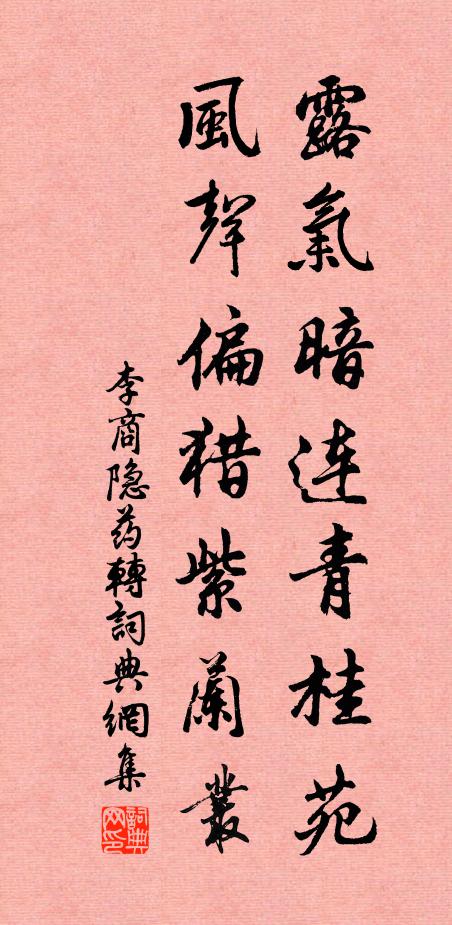 露氣暗連青桂苑
風聲偏猎紫蘭叢
李商隐药轉詞典網集
詞典網印